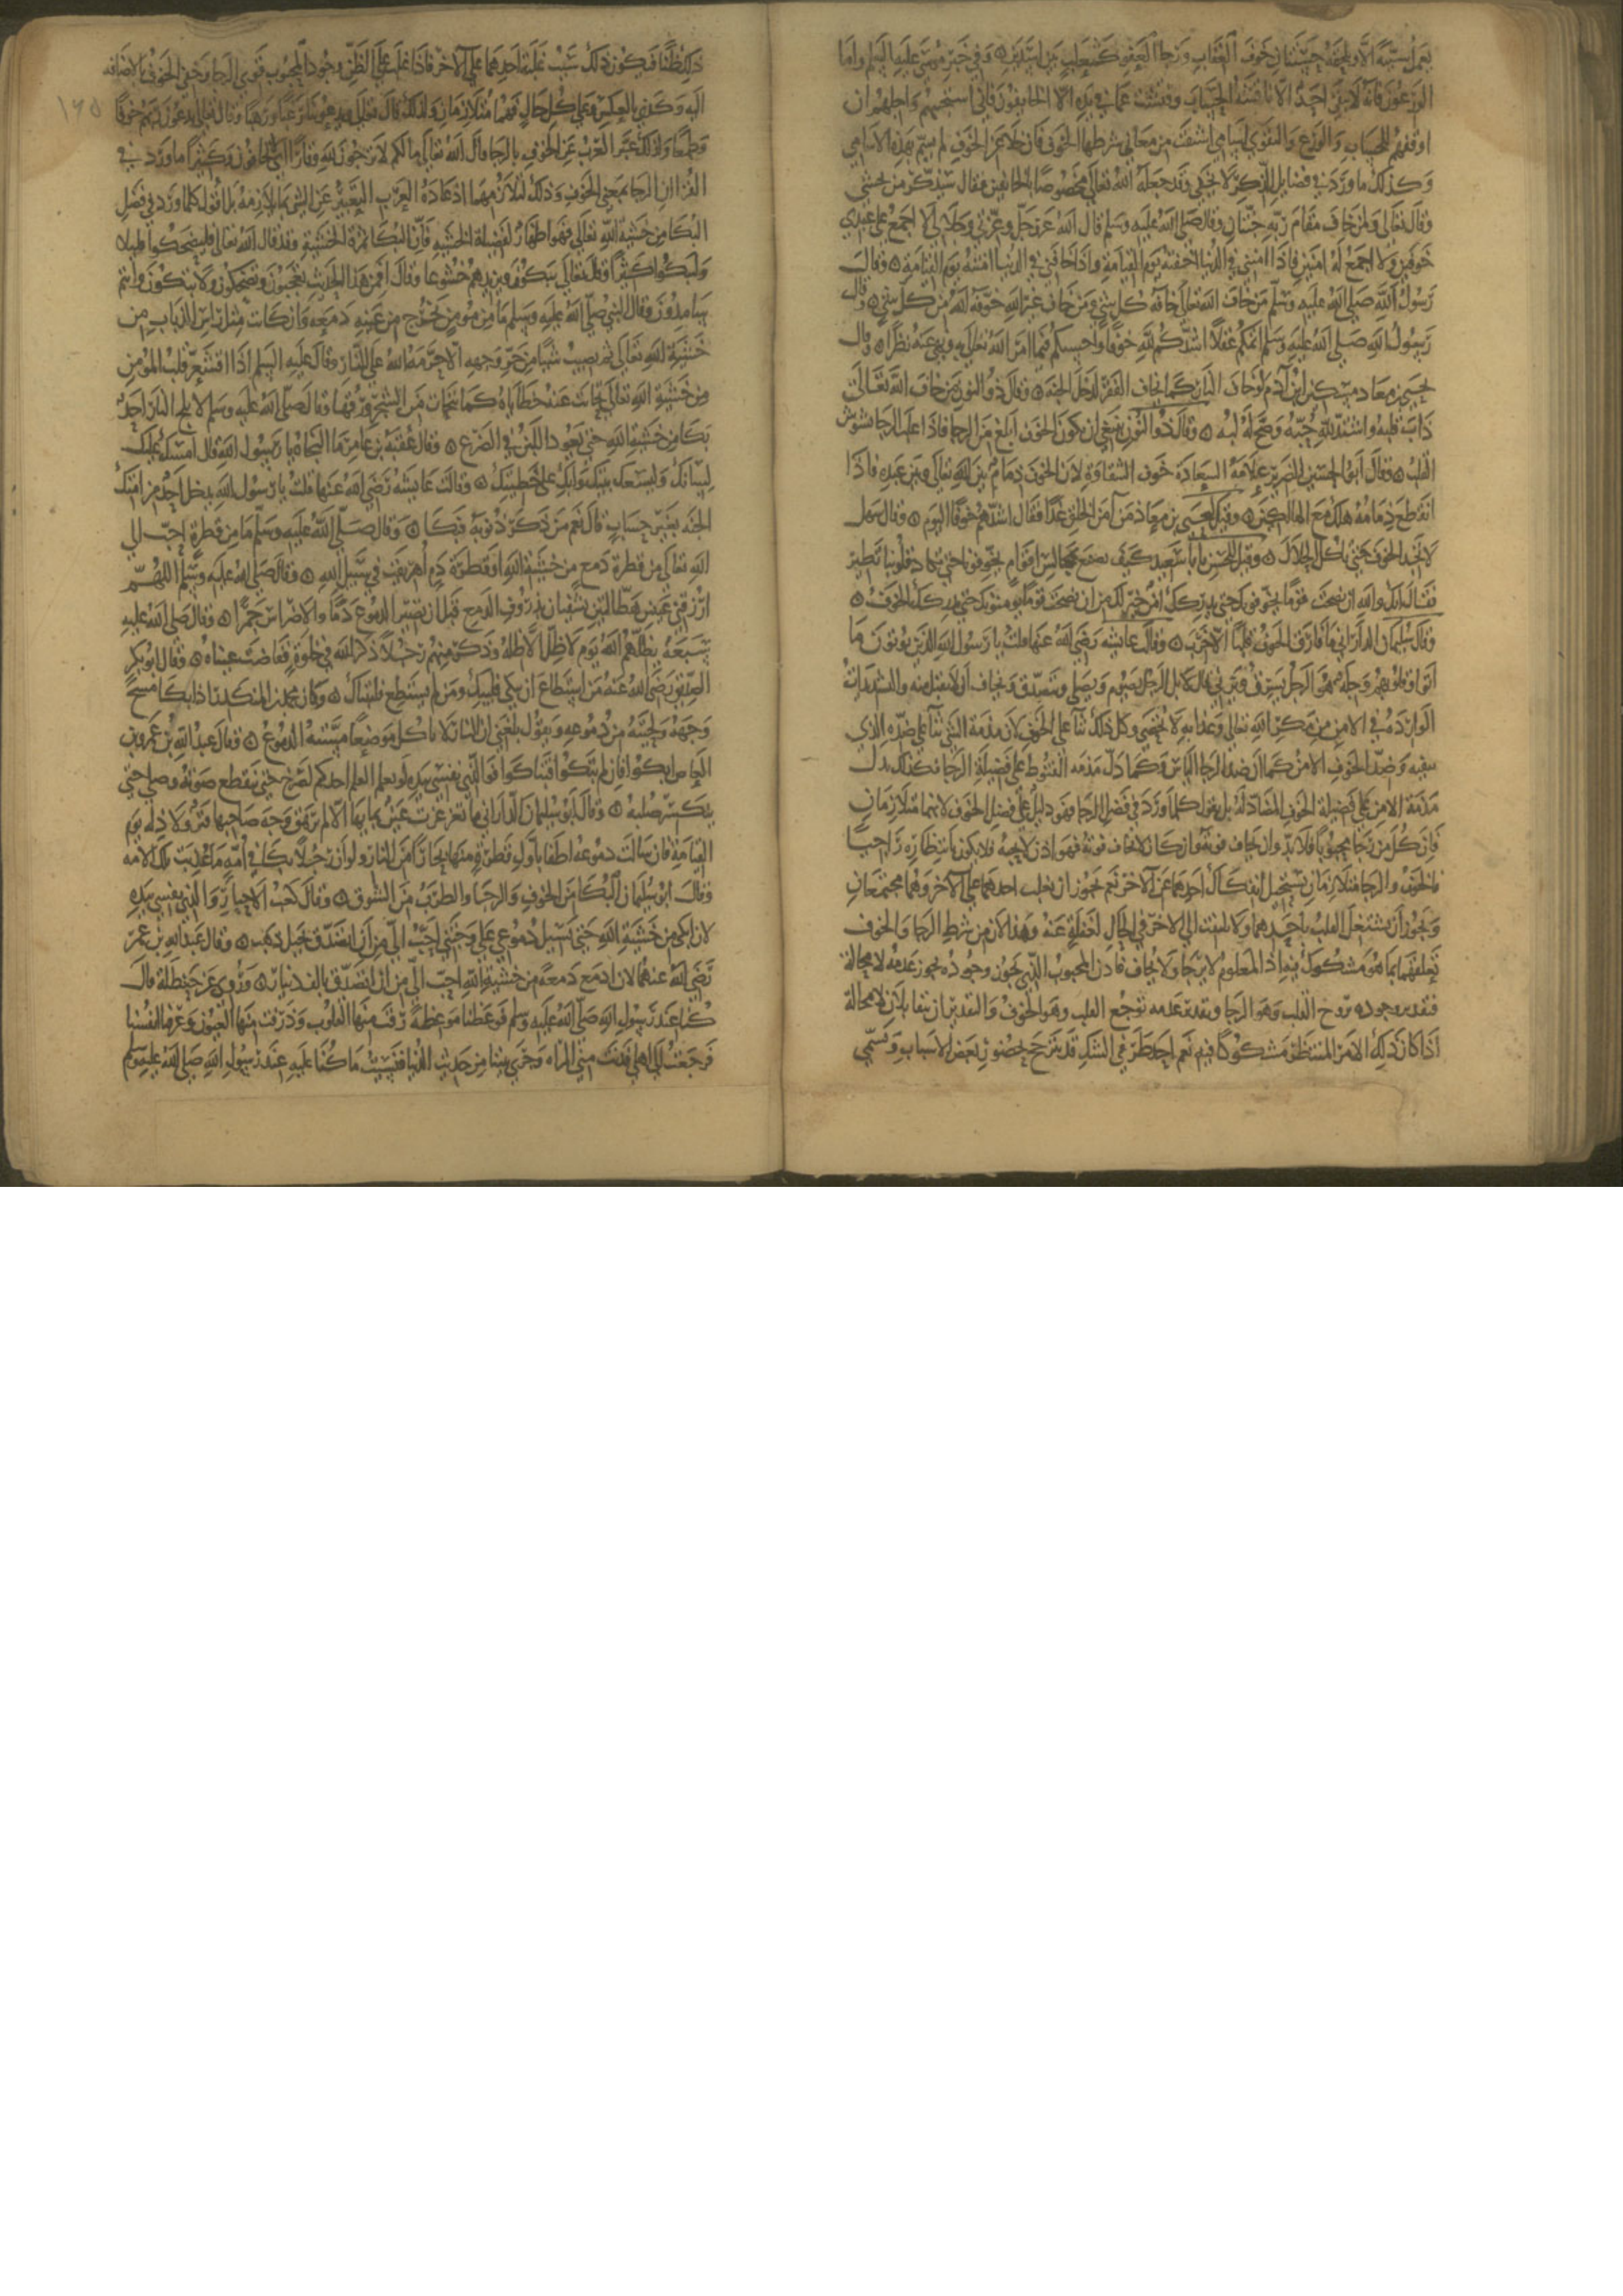 يعمل سيئة الا ويلحقه جنتان خوف العقاب ورجا العفو كثعلب بين اسدين وفي خبر موسى عليه السلم واما
الورعون فانه لا يبقى احد الا ناقشته الحساب وفتشت عما في يديه الا الخايفون فاني استحييهم واجلهم ان
اوقفهم للحساب والورع والتقوى اسامي اشتقت من معاني شرطها الخوف فان خلا عن الخوف لم يسم بهذه الاسامي
وكذلك ما ورد في فضايل الذكر لا يخفى وقد جعله الله تعالى مخصوصا بالخايفين فقال سيذكر من يخشى
وقال تعالى ولمن خاف مقام ربه جنتان وقال صلى الله عليه وسلم قال الله عز وجل وعزتي وجلالي لا اجمع على عبدي
خوفين ولا اجمع له امنين فاذا امنني في الدنيا اخفته يوم القيامة واذا خافني في الدنيا امنته يوم القيامة وقال
رسول الله صلى الله عليه وسلم من خاف الله تعالى خافه كل شي ومن خاف غير الله خوفه الله من كل شي وقال
رسول الله صلى الله عليه وسلم اتمكم عقلا اشدكم لله خوفا واحسنكم فيما امر الله تعالى به ونهى عنه نظرا وقال
يحيى بن معاذ مسكين ابن آدم لو خاف النار كما يخاف الفقر لدخل الجنه وقال ذو النون من خاف الله تعالى
ذاب قلبه واشتد لله حبه وصح له لبه وقال ذو النون ينبغي ان يكون الخوف ابلغ من الرجا فاذا غلب الرجا تشوش
القلب وقال ابو الحسين الضرير علامة السعادة خوف الشقاوة لان الخوف زمام بين الله تعالى وبين عبده فاذا
انقطع زمامه هلك مع الهالكين وقيل ليحيى بن معاذ من آمن الخلق غدا فقال اشدهم خوفا اليوم وقال سهل
لا تجد الخوف حتى تاكل الحلال وقيل للحسن يا با سعيد كيف نصنع نجالس اقوام يخوفونا حتى تكاد قلوبنا تطير
فقال انك والله ان تصحب قوما يخوفونك حتى يدركك امن خير لك من ان تصحب قوما يومنونك حتى يدركك الخوف
وقال سليمان الداراني ما فارق الخوف قلبا الا خرب وقالت عايشه رضي الله عنها قلت يا رسول الله الذين يوتون ما
اتوا وقلوبهم وجله هو الرجل يسرق ويزني قال لا بل الرجل يصوم ويصلي ويتصدق ويخاف ان لا يقبل منه والتشديدات
الواردة في الامن من مكر الله تعالى وعذابه لا تنحصر وكل ذلك ثنا على الخوف لان مذمة الشي ثنا على ضده الذي
ينفيه وضد الخوف الامن كما ان ضد الرجا الياس وكما دل مذمه القنوط على فضيلة الرجا فكذلك يدل
مذمة الامن على فضيلة الخوف المضاد له بل نقول كلما ورد في فضل الرجا فهو دليل على فضل الخوف لانهما متلازمان
فان كل من رجا محبوبا فلا بد وان يخاف فوته فان كان لا يخاف فوته فهو اذن لا يحبه فلا يكون بانتظاره راجيا
فالخوف والرجا متلازمان يستحيل انفكاك احدهما عن الآخر نعم يجوز ان يغلب احدهما على الآخر وهما مجتمعان
ويجوز ان يشتغل القلب باحدهما ولا يلتفت الى الاخر في الحال لغفلة عنه وهذا لان من شرط الرجا والخوف
تعلقهما بما هو مشكوك فيه اذ المعلوم لا يرجا ولا يخاف فاذن المحبوب الذي يجوز وجوده يجوز عدمه لا محالة
فتقدير وجوده يروح القلب وهو الرجا وتقدير عدمه يوجع القلب وهو الخوف والتقديران يتقابلان لا محالة
اذا كان ذلك الامر المنتظر مشكوكا فيه نعم احد طرفي الشك قد يترجح بحضور بعض الاسباب ويسمى
ذلك ظنا فيكون ذلك سبب غلبة احدهما على الآخر فاذا غلب على الظن وجود المحبوب قوي الرجا وخفي الخوف بالاضافه
١٦٥
اليه وكذى بالعكس وعلى كل حال فهما متلازمان ولذلك قال تعالى يدعوننا رغبا ورهبا وقال تعالى يدعون ربهم خوفا
وطمعا ولذلك عبر العرب عن الخوف بالرجا قال الله تعالى ما لكم لا ترجون لله وقارا اي لا تخافون وكثيرا ما ورد في
القران الرجا بمعنى الخوف وذلك لتلازمهما اذ عادة العرب التعبير عن الشي بما يلازمه بل اقول كلما ورد في فضل
البكا من خشية الله تعالى فهو اظهار لفضيلة الخشية فان البكا ثمرة الخشية وقد قال الله تعالى فليضحكوا قليلا
وليبكوا كثيرا وقال تعالى يبكون ويزيدهم خشوعا وقال أفمن هذا الحديث تعجبون وتضحكون ولا تبكون وانتم
سامدون وقال النبي صلى الله عليه وسلم ما من مومن تخرج من عينه دمعه وان كانت مثل راس الذباب من
خشية الله تعالى ثم تصيب شيا من حر وجهه الا حرمه الله على النار وقال عليه السلم اذا اقشعر قلب المومن
من خشية الله تعالى تحاتت عنه خطاياه كما تتحات من الشجر ورقها وقال صلى الله عليه وسلم لا يلج النار احد
بكا من خشية الله حتى يعود اللبن في الضرع وقال عقبة بن عامر ما النجاه يا رسول الله قال امسك عليك
لسانك وليسعك بيتك وابك على خطيتك وقالت عايشه رضي الله عنها قلت يا رسول الله يدخل احد من امتك
الجنه بغير حساب قال نعم من ذكر ذنوبه فبكا وقال صلى الله عليه وسلم ما من قطرة احب الى
الله تعالى من قطرة دمع من خشية الله او قطرة دم اهريقت في سبيل الله وقال صلى الله عليه وسلم اللهم
ارزقني عينين هطالتين تشفيان بذروف الدمع قبل ان تصير الدموع دما والاضراس جمرا وقال صلى الله عليه
سبعه يظلهم الله يوم لا ظل الا ظله وذكر منهم رجلا ذكر الله في خلوة ففاضت عيناه وقال ابو بكر
الصديق رضي الله عنه من استطاع ان يبكي فليبك ومن لم يستطع فليتباك وكان محمد بن المنكدر اذا بكا مسح
وجهه ولحيته من دموعه ويقول بلغني ان النار لا تاكل موضعا مسته الدموع وقال عبد الله بن عمرو بن
العاص ابكوا فان لم تبكوا فتباكوا فوالذي نفسي بيده لو يعلم العلم احدكم لصرخ حتى ينقطع صوته وصلى حتى
ينكسر صلبه وقال ابو سليمان الداراني ما تغرغرت عين بمايها الا لم يرهق وجه صاحبها قتر ولا ذله يوم
القيامة فان سالت دموعه اطفا باول قطرة منها بحارا من النار ولو ان رجلا بكا في امة ما عذبت تلك الامه
وقال ابو سليمان البكا من الخوف والرجا والطرب من الشوق وقال كعب الاحبار والذي نفسي بيده
لان ابكي من خشية الله حتى تسيل دموعي على وجنتي احب الي من ان اتصدق بجبل ذهب وقال عبد الله بن عمر
رضي الله عنهما لان ادمع دمعة من خشية الله احب الي من ان اتصدق بالف دينار وروى عن حنظلة قال
كنا عند رسول الله صلى الله عليه وسلم فوعظنا موعظة رقت منها القلوب وذرفت منها العيون وعرفنا انفسنا
فرجعت الى اهلي فدنت مني المراه وجرى بيننا من حديث الدنيا فنسيت ما كنا عليه عند رسول الله صلى الله عليه وسلم